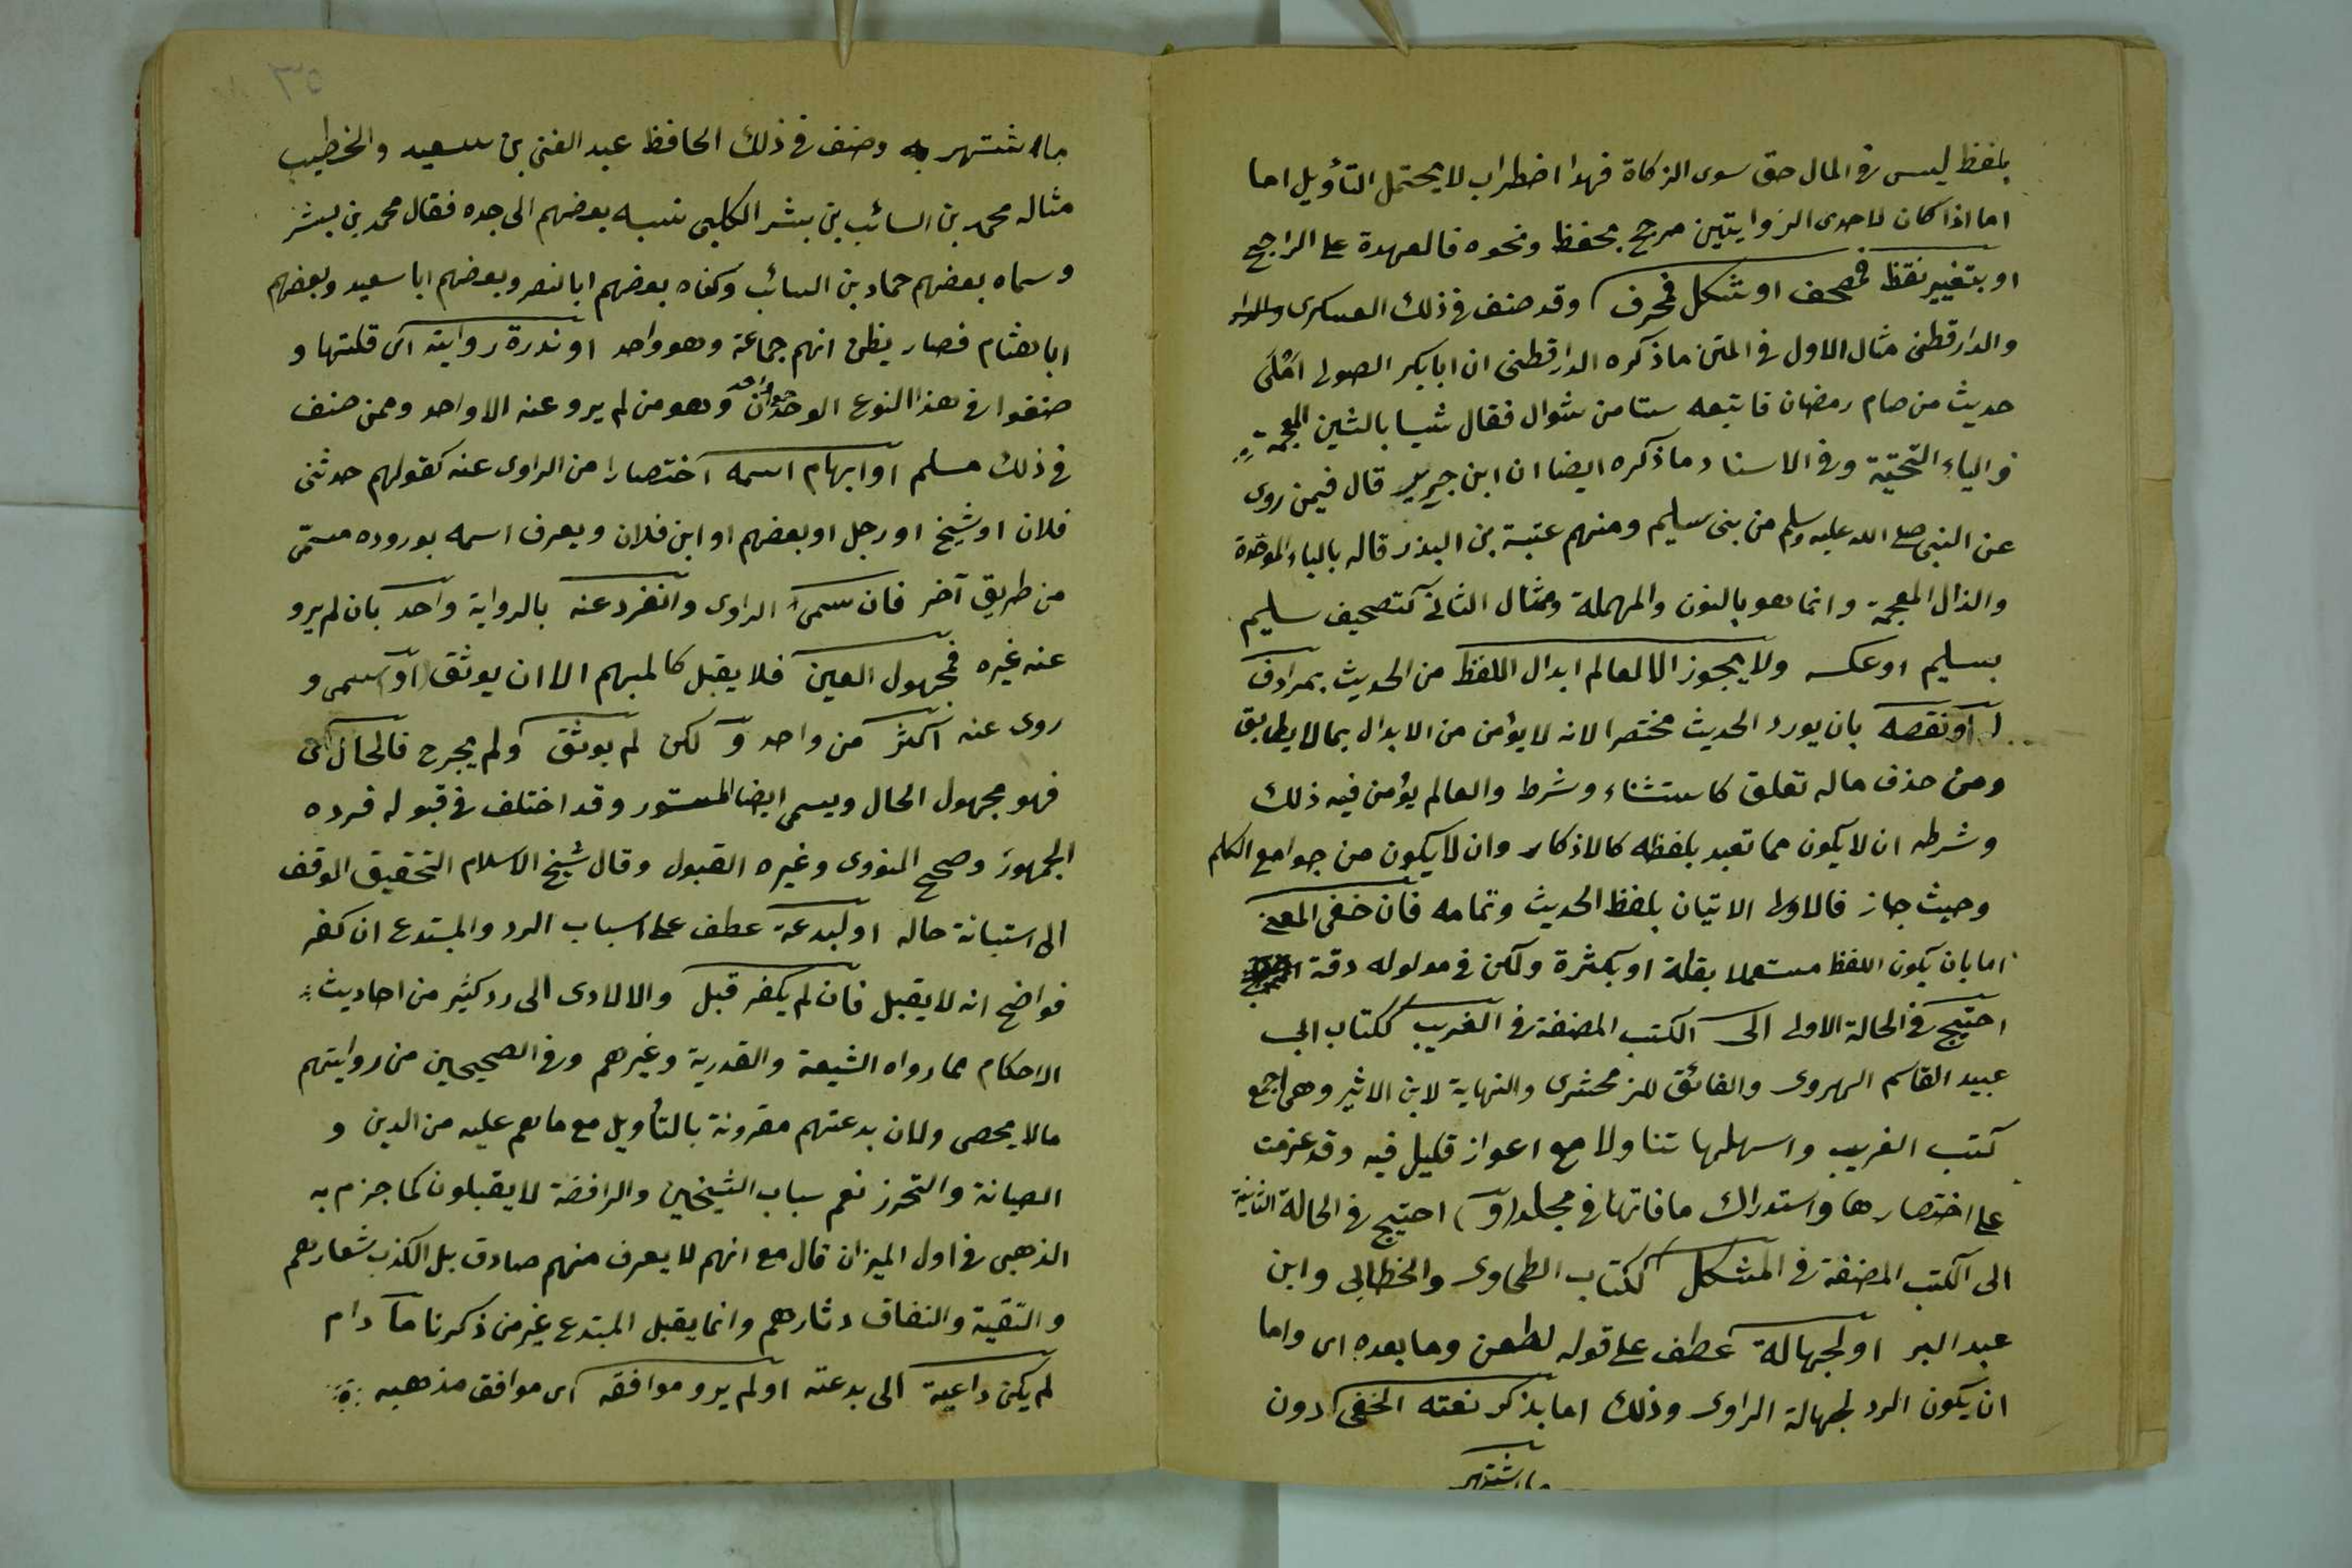 بلفظ ليس في المال حق سوى الزكاة فهذا اضطراب لا يحتمل التأويل اما
اما اذا كان لاحدى الروايتين مرجح بحفظ ونحوه فالعهدة على الراجح
او بتغيير نقط فمصحف او شكل فمحرف وقد صنف في ذلك العسكرى
والدارقطنى مثال الاول في المتن ما ذكره الدارقطنى ان ابا بكر الصولى املى
حديث من صام رمضان فاتبعه ستا من شوال فقال شيا بالشين المعجمة
والياء التحتية وفي الاسناد ما ذكره ايضا ان ابن جرير قال فيمن روى
عن النبى صلى الله عليه وسلم من بنى سليم ومنهم عتبة بن البذر قاله بالباء الموحدة
والذال المعجمة وانما هو بالنون والمهملة ومثال الثاني كتصحيف سليم
بسليم او عكسه ولا يجوز الا لعالم ابدال اللفظ من الحديث بمرادف
له او نقصه بان يورد الحديث مختصرا لانه لا يؤمن من الابدال بما لا يطابق
ومن حذف ما له تعلق كاستثناء وشرط والعالم يؤمن فيه ذلك
وشرطه ان لا يكون مما تعبد بلفظه كالاذكار وان لا يكون من جوامع الكلم
وحيث جاز فالاولى الاتيان بلفظ الحديث وتمامه فان خفى المعنى
اما بان يكون اللفظ مستعملا بقلة او بكثرة ولكن في مدلوله دقة
احتيج في الحالة الاولى الى الكتب المصنفة في الغريب ككتاب ابى
عبيد القاسم الهروى والفائق للزمخشرى والنهاية لابن الاثير وهى اجمع
كتب الغريب واسهلها تناولا مع اعواز قليل فيه وقد عزمت
على اختصارها واستدراك ما فاتها في مجلد (و) احتيج في الحالة الثانية
الى الكتب المصنفة في المشكل ككتاب الطحاوى والخطابى وابن
عبد البر او لجهالة عطف على قوله لطعن وما بعده اى واما
ان يكون الرد لجهالة الراوى وذلك اما بذكر نعته الخفى دون
ما اشتهر
٣٥
ما اشتهر به وصنف في ذلك الحافظ عبد الغنى بن سعيد والخطيب
مثاله محمد بن السائب بن بشر الكلبى نسبه بعضهم الى جده فقال محمد بن بشر
وسماه بعضهم حماد بن السائب وكناه بعضهم ابا النصر وبعضهم ابا سعيد وبعضهم
ابا هشام فصار يظن انهم جماعة وهو واحد او ندرة روايته اى قلتها و
صنفوا في هذا النوع الوحدان وهو من لم يرو عنه الا واحد وممن صنف
في ذلك مسلم او ابهام اسمه اختصارا من الراوى عنه كقولهم حدثنى
فلان او شيخ او رجل او بعضهم او ابن فلان ويعرف اسمه بوروده مسمّى
من طريق آخر فان سمى الراوى وانفرد عنه بالرواية واحد بان لم يرو
عنه غيره فمجهول العين فلا يقبل كالمبهم الا ان يوثق او سمى و
روى عنه اكثر من واحد و لكن لم يوثق ولم يجرح فالحال اى
فهو مجهول الحال ويسمى ايضا المستور وقد اختلف في قبوله فرده
الجمهور وصحح النووى وغيره القبول وقال شيخ الاسلام التحقيق الوقف
الى استبانة حاله او لبدعة عطف على اسباب الرد والمبتدع ان كفر
فواضح انه لا يقبل فان لم يكفر قبل والا لادى الى رد كثير من احاديث
الاحكام مما رواه الشيعة والقدرية وغيرهم وفي الصحيحين من روايتهم
ما لا يحصى ولان بدعتهم مقرونة بالتأويل مع ما هم عليه من الدين و
الصيانة والتحرز نعم سباب الشيخين والرافضة لا يقبلون كما جزم به
الذهبى في اول الميزان قال مع انهم لا يعرف منهم صادق بل الكذب شعارهم
والتقية والنفاق دثارهم وانما يقبل المبتدع غير من ذكرنا ما دام
لم يكن داعية الى بدعته او لم يرو موافقه اى موافق مذهبه